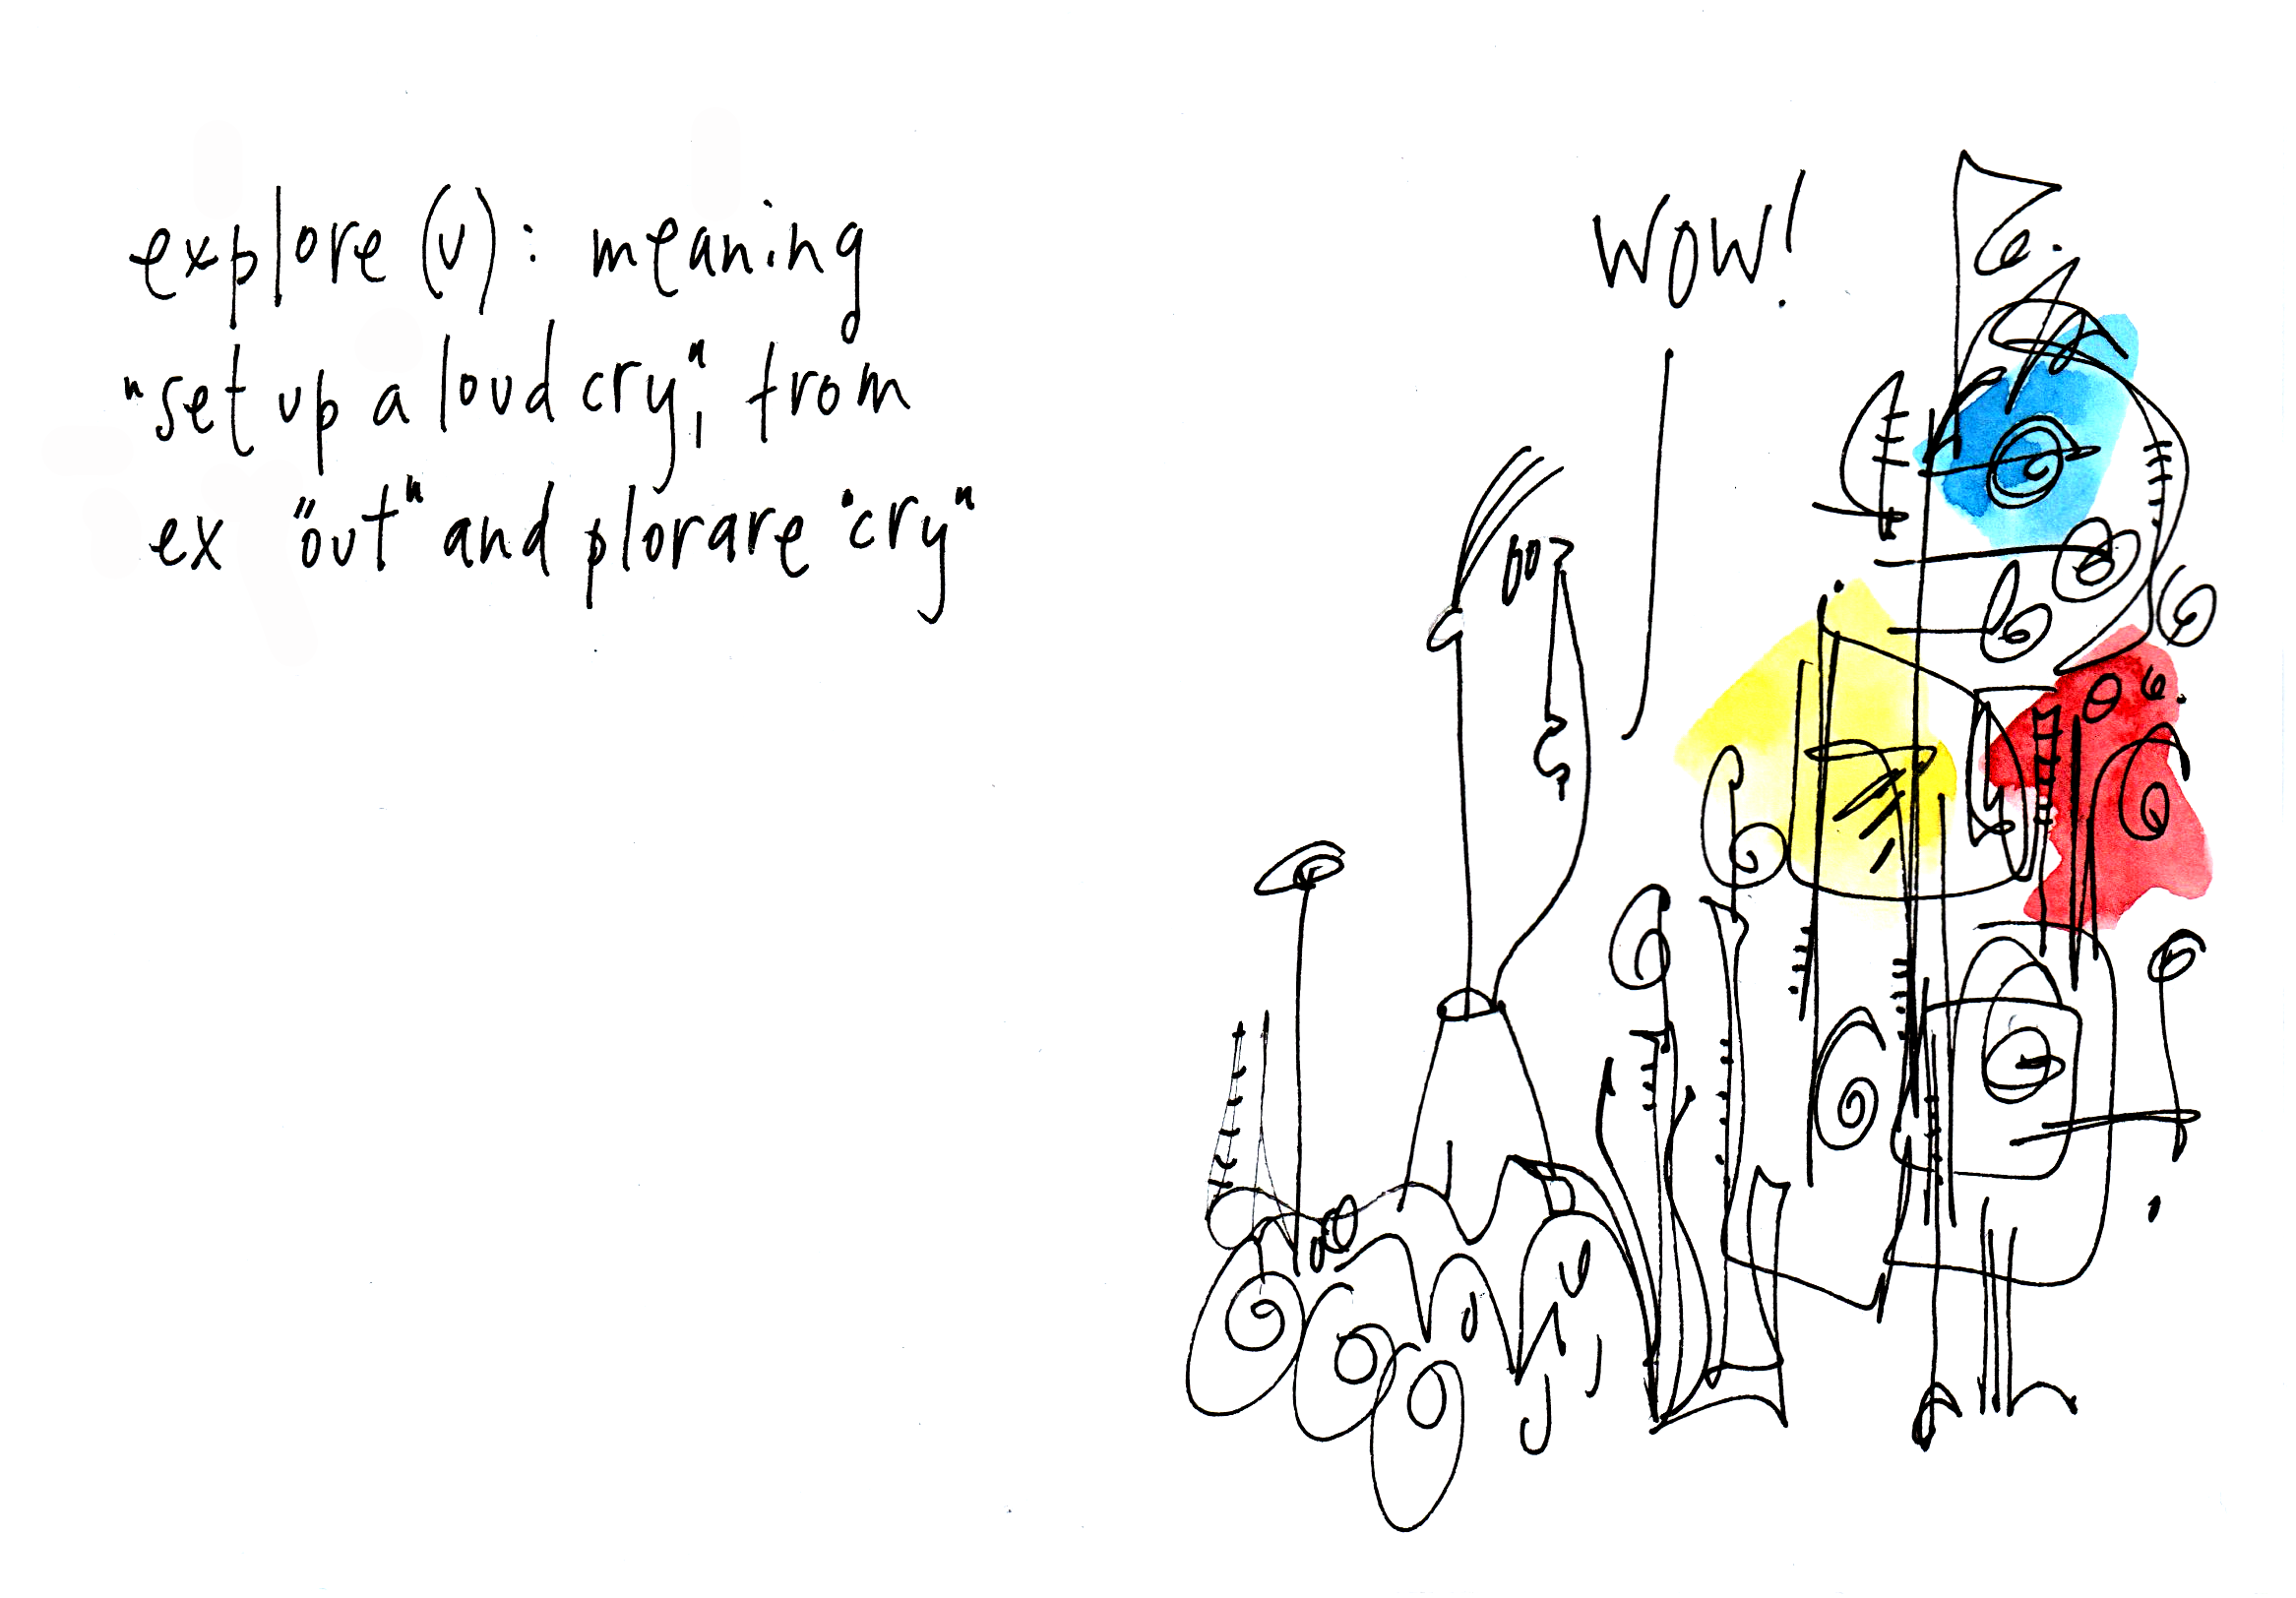 explore (v): meaning
"set up a loud cry", from
ex "out" and plorare "cry"
WOW!